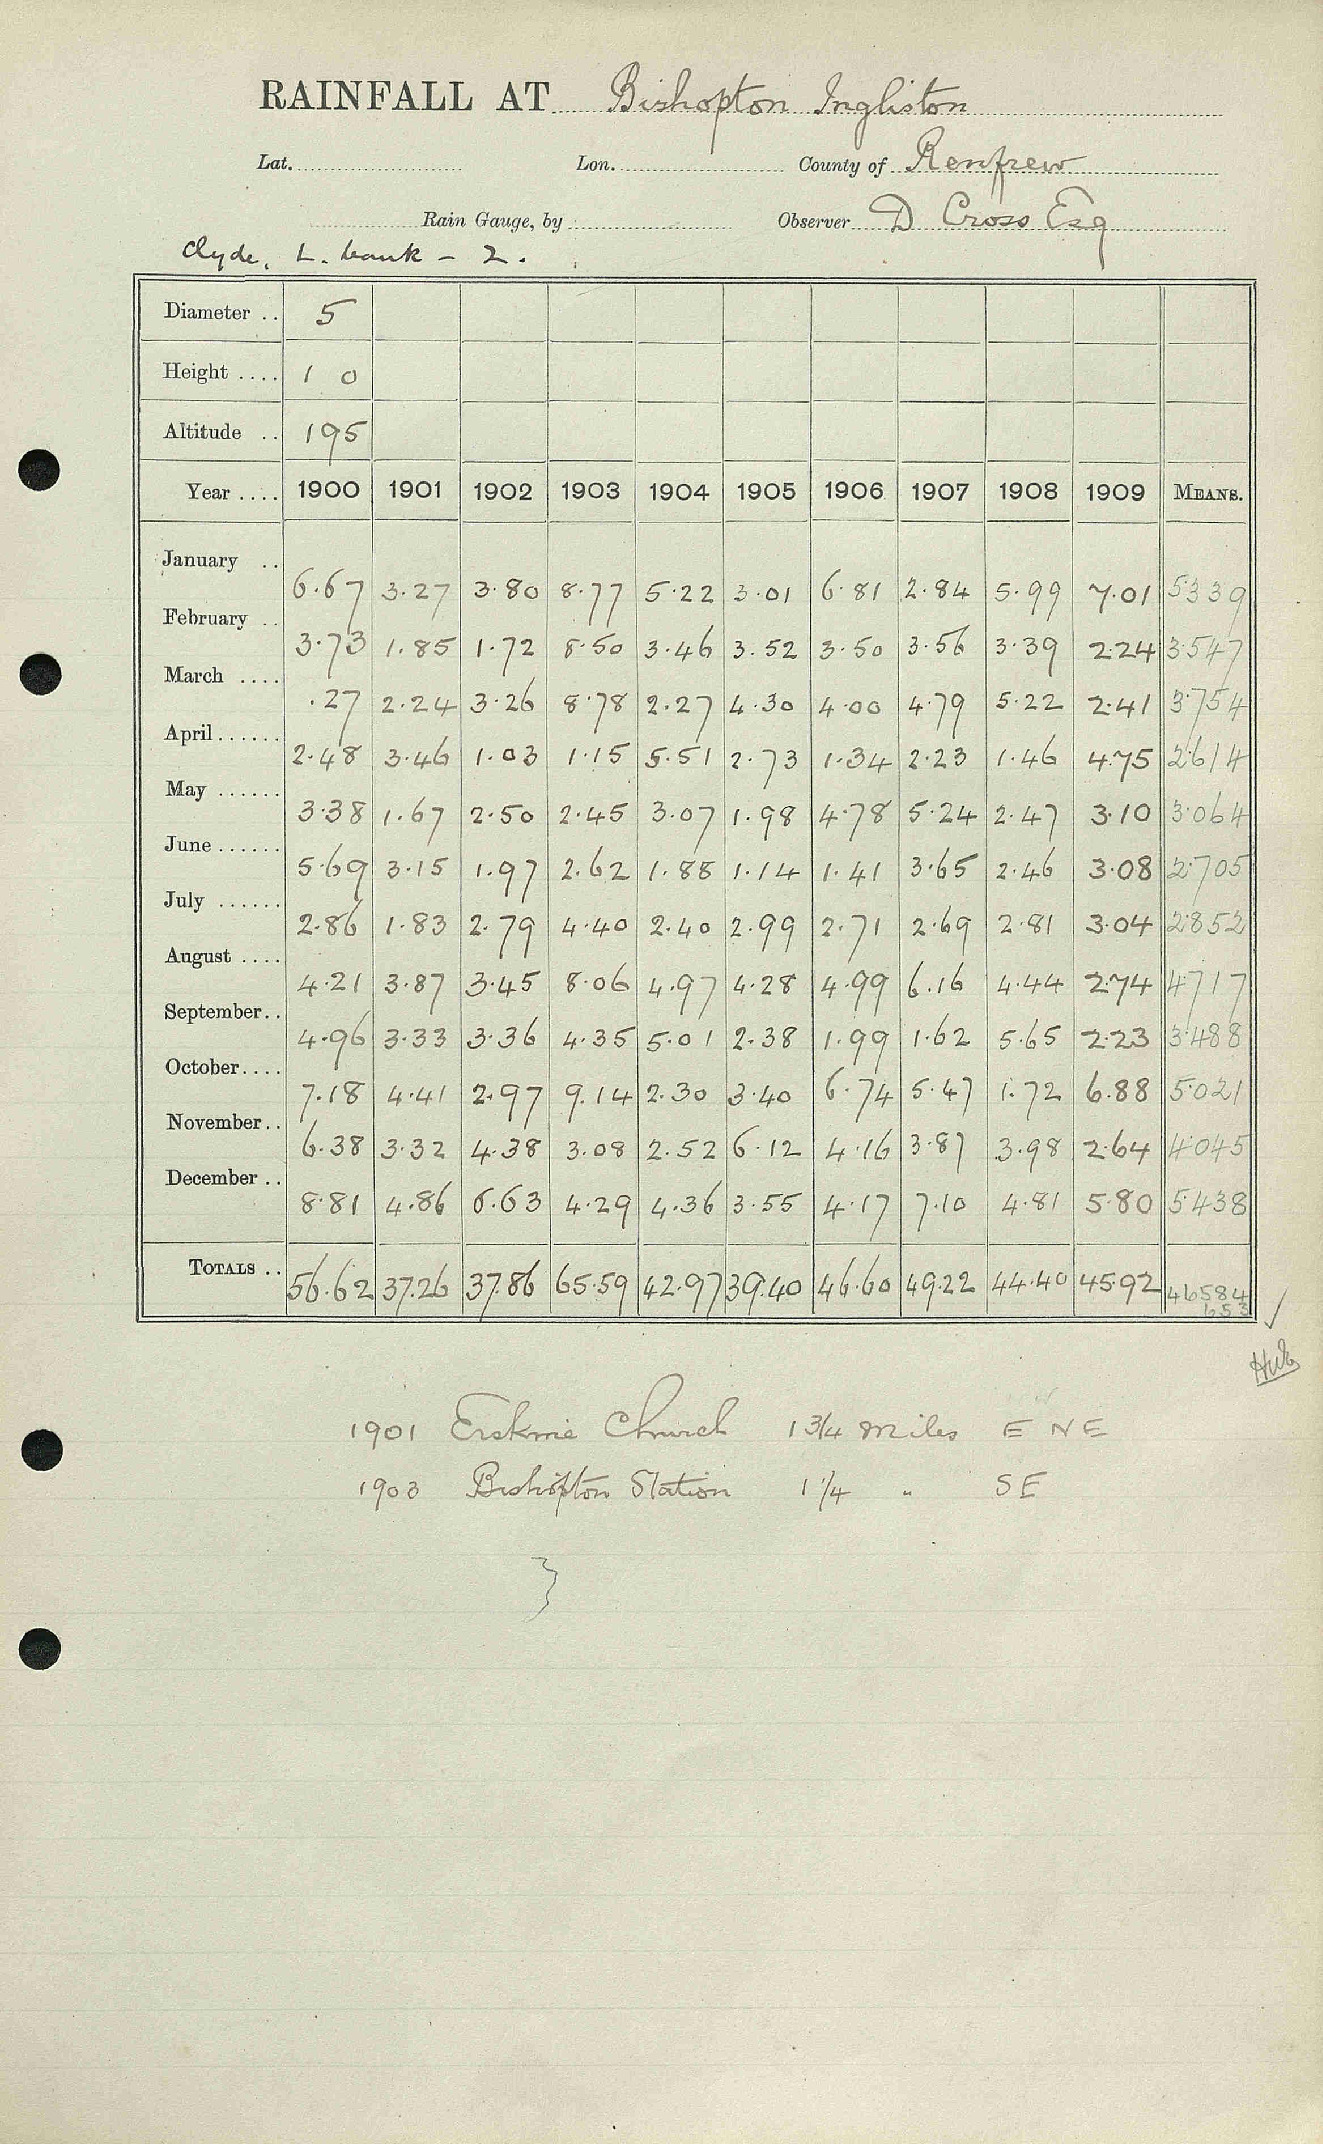 RAINFALL AT Bishopton Ingliston
Lat. Lon. County of Renfrew
Rain Gauge, by Observer D Cross Esq
Clyde, L. bank - 2.
Diameter .. 5
Height .... 1 0
Altitude .. 195
Year .... 1900 1901 1902 1903 1904 1905 1906 1907 1908 1909 MEANS.
January .. 6.67 3.27 3.80 8.77 5.22 3.01 6.81 2.84 5.99 7.01 5339
February .. 3.73 1.85 1.72 8.50 3.46 3.52 3.50 3.56 3.39 2.24 3.547
March .... .27 2.24 3.26 8.78 2.27 4.30 4.00 4.79 5.22 2.41 3.754
April...... 2.48 3.46 1.03 1.15 5.51 2.73 1.34 2.23 1.46 4.75 2.614
May ...... 3.38 1.67 2.50 2.45 3.07 1.98 4.78 5.24 2.47 3.10 3.064
June ...... 5.69 3.15 1.97 2.62 1.88 1.14 1.41 3.65 2.46 3.08 2.705
July ...... 2.86 1.83 2.79 4.40 2.40 2.99 2.71 2.69 2.81 3.04 2852
August .... 4.21 3.87 3.45 8.06 4.97 4.28 4.99 6.16 4.44 2.74 4717
September.. 4.96 3.33 3.36 4.35 5.01 2.38 1.99 1.62 5.65 2.23 3.488
October.... 7.18 4.41 2.97 9.14 2.30 3.40 6.74 5.47 1.72 6.88 5.021
November.. 6.38 3.32 4.38 3.08 2.52 6.12 4.16 3.87 3.98 2.64 4.045
December .. 8.81 4.86 6.63 4.29 4.36 3.55 4.17 7.10 4.81 5.80 5.438
TOTALS .. 56.62 37.26 37.86 65.59 42.97 39.40 46.60 49.22 44.40 45.92 46584
653
1901 Erskine Church 1 3/4 miles E NE
1903 Bishopton Station 1 1/4 " SE